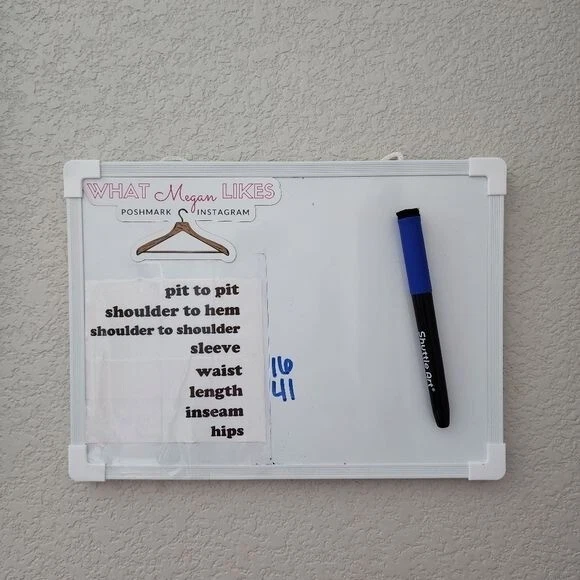 WHAT Megan LIKES
POSHMARK INSTAGRAM
pit to pit
shoulder to hem
shoulder to shoulder
sleeve
waist 16
length 41
inseam
hips
Shuttle Art